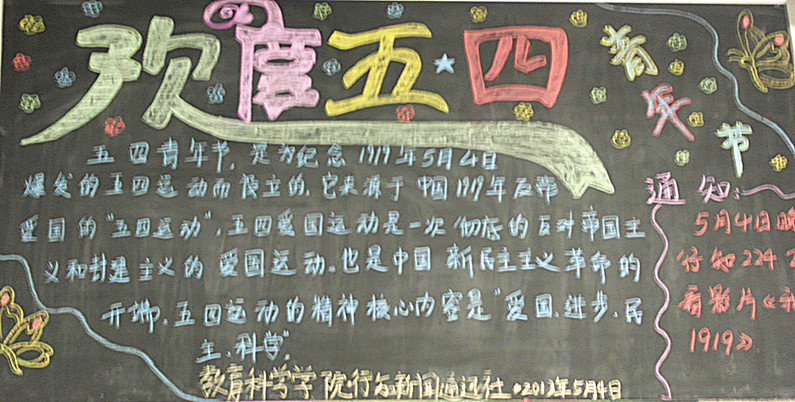 欢度五四
青年节
五四青年节，是为纪念1919年5月4日
爆发的五四运动而设立的，它来源于中国1919年反帝
爱国的“五四运动”，五四爱国运动是一次彻底的反对帝国主
义和封建主义的爱国运动。也是中国新民主主义革命的
开端，五四运动的精神核心内容是“爱国、进步、民
主、科学”。
教育科学学院行知新闻通讯社 2012年5月4日
通知：
5月4日晚
行知224
看影片《我
1919》